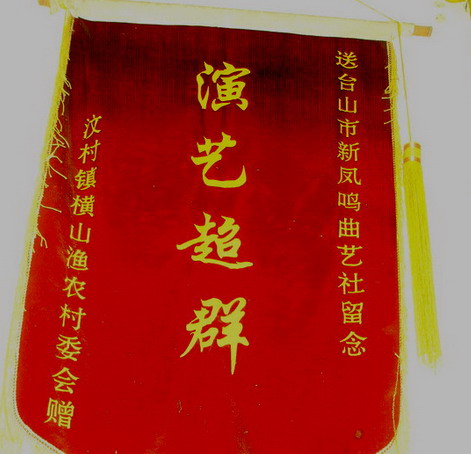 送台山市新凤鸣曲艺社留念
演艺超群
汶村镇横山渔农村委会赠